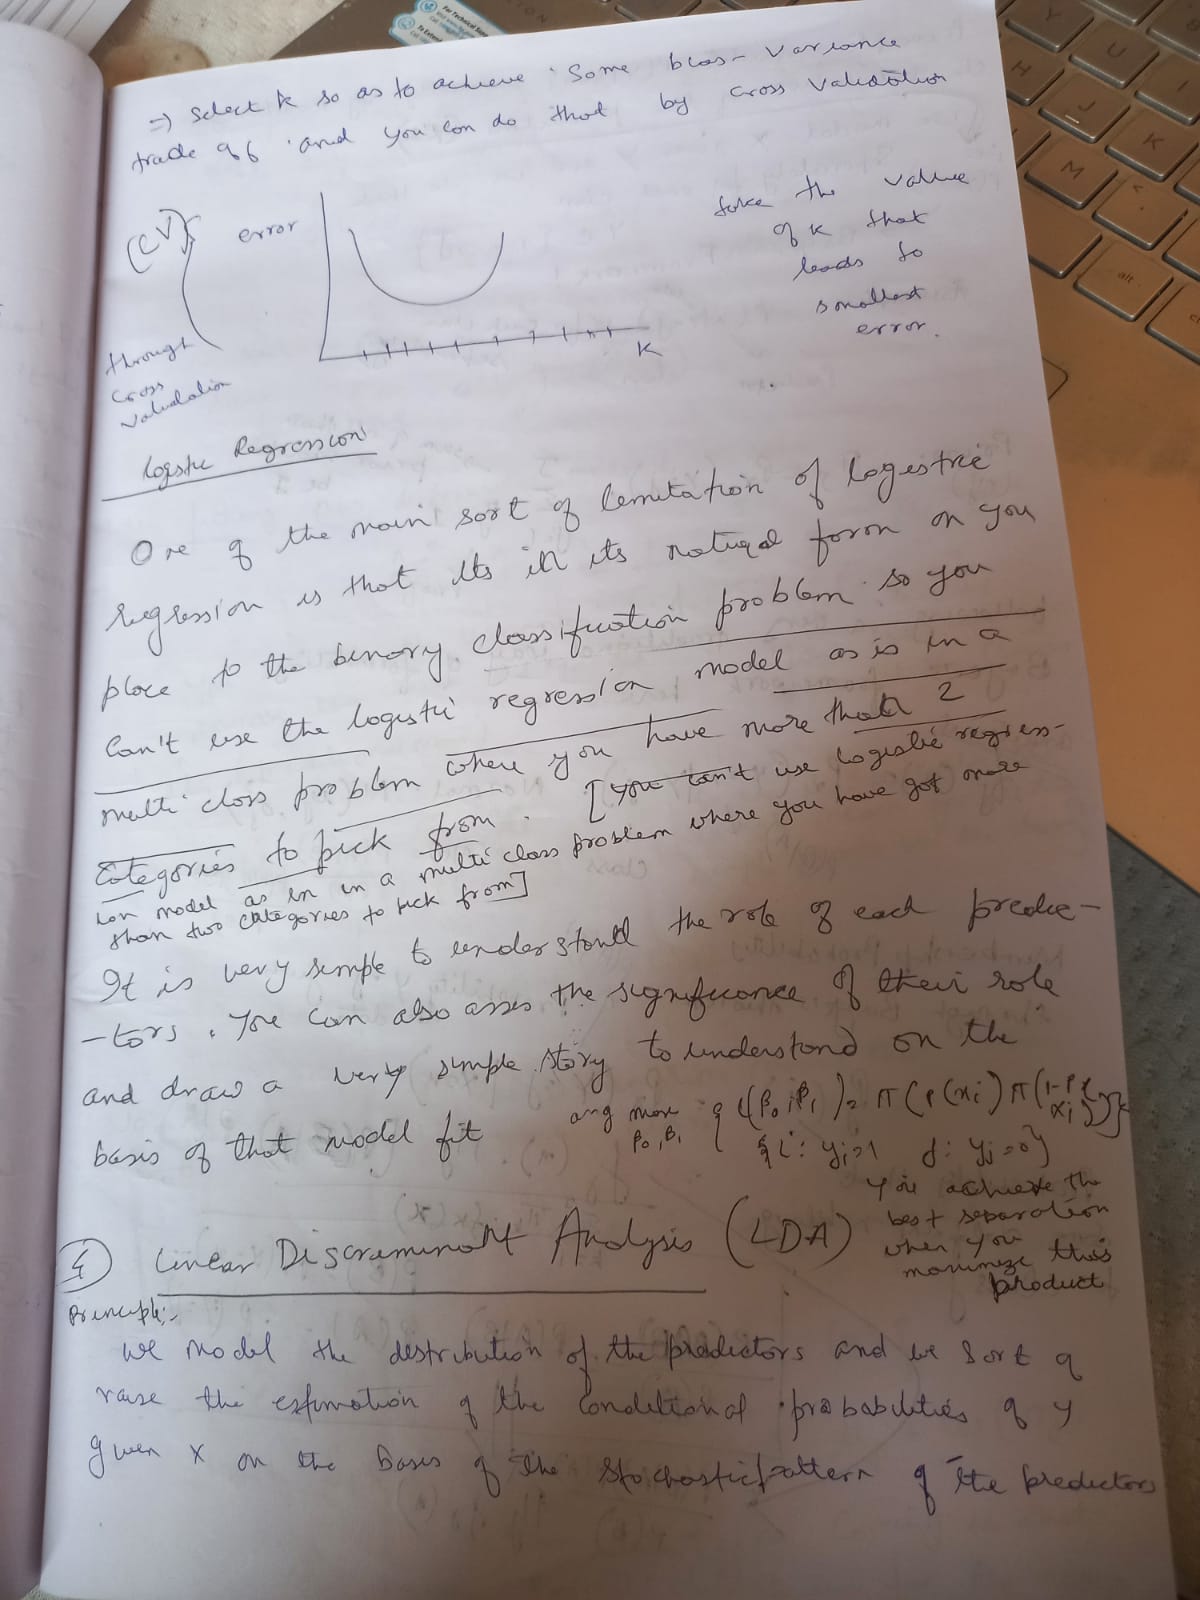 =) Select k so as to achieve some bias-variance
trade off and you can do that by cross validation
(CV) error
take the value
of k that
leads to
smallest
error.
K
through
cross
validation
logistic Regression
One of the main sort of limitation of logestric
regression is that its in its natural form on you
place to the binary classification problem so you
can't use the logistic regression model as is in a
multi class problem where you have more than 2
categories to pick from. [you can't use logistic regress-
ion model as in in a multi class problem where you have got more
than two categories to pick from]
It is very simple to understand the role of each predic-
-tors. You can also asses the significance of their role
and draw a very simple story to understand on the
basis of that model fit
arg max { L(β0, β1) = π(P(xi) π(1-P(xj))}
β0, β1 {i: yi=1 j: yj=0}
you achieve the
best separation
when you
maximize this
product
4 Linear Discriminant Analysis (LDA)
Principle:-
we model the distribution of the predictors and we sort of
raise the estimation of the conditional probabilities of y
given x on the basis of the stochastic pattern of the predictors